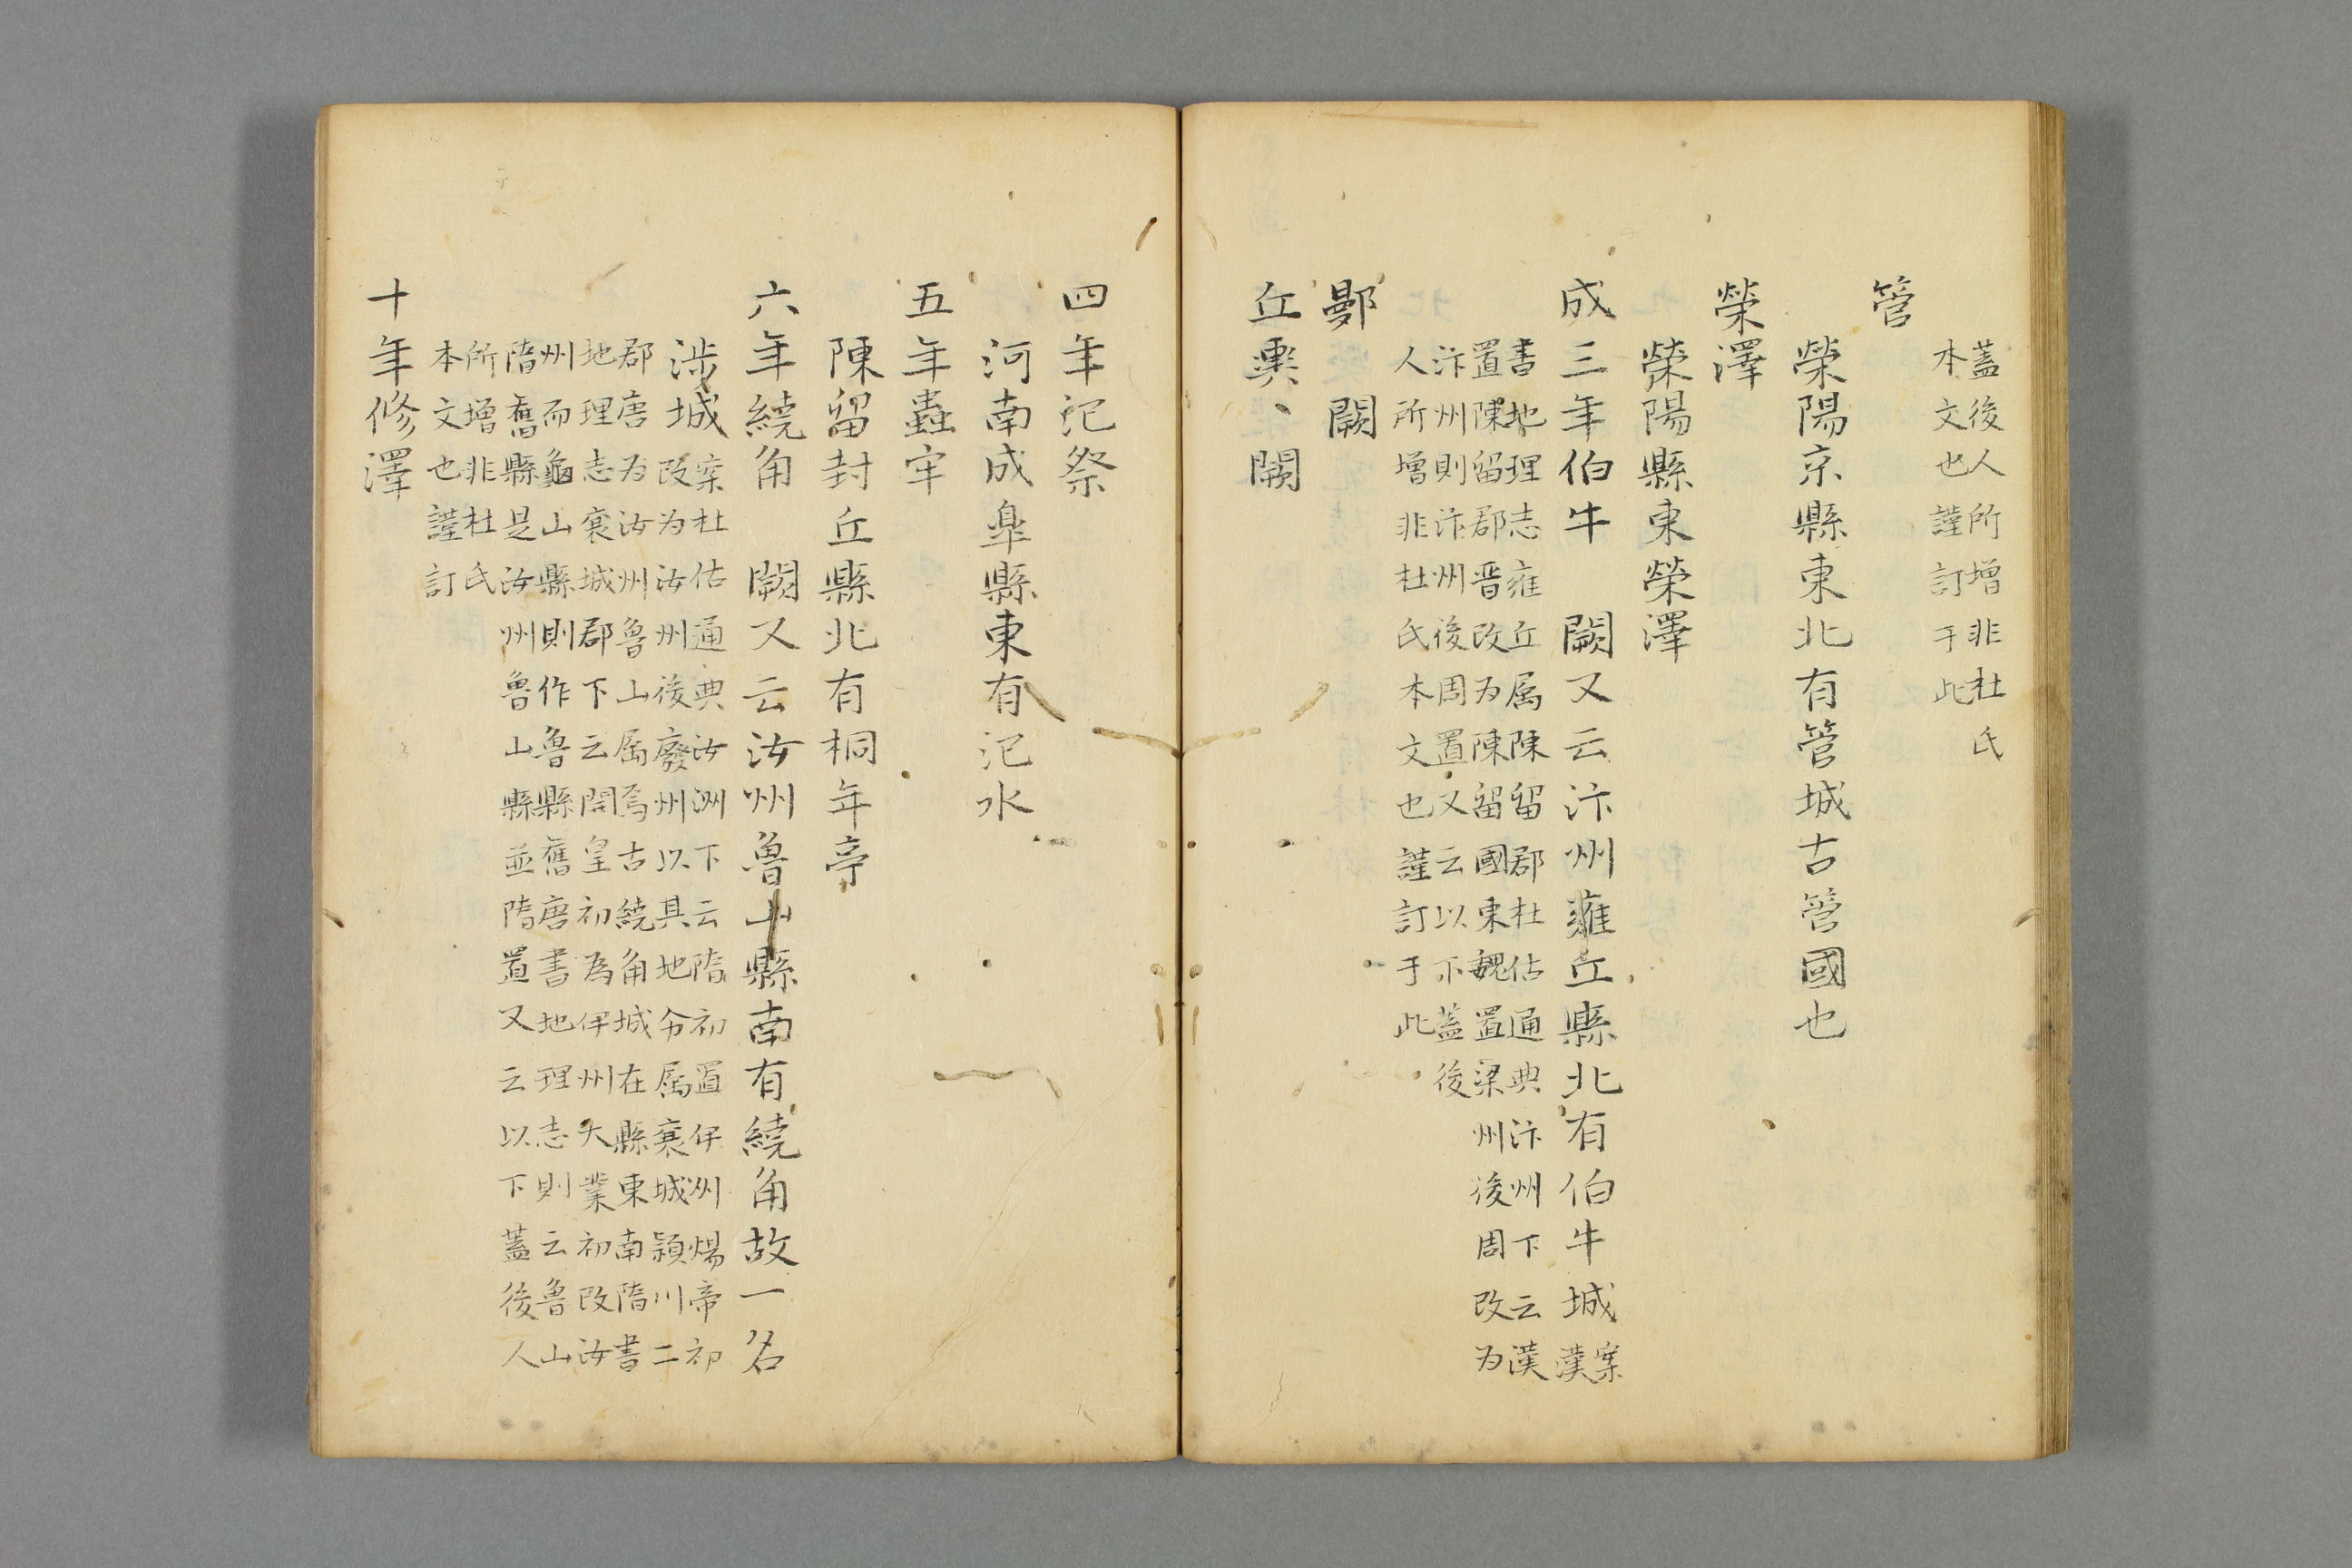 蓋後人所增非杜氏
本文也謹訂于此
管
滎陽京縣東北有管城古管國也
滎澤
滎陽縣東滎澤
成三年伯牛　闕又云汴州雍丘縣北有伯牛城案
漢
書地理志雍丘属陳留郡杜佑通典汴州下云漢
置陳留郡晋改为陳留國東魏置梁州後周改为
汴州則汴州後周置又云以下蓋後
人所增非杜氏本文也謹訂于此
鄤　闕
丘輿、闕
四年汜祭
河南成皐縣東有汜水
五年蟲牢
陳留封丘縣北有桐牢亭
六年繞角　闕又云汝州魯山縣南有繞角故一名
涉城案杜佑通典汝洲下云隋初置伊州煬帝初
改为汝州後廢州以其地分属襄城潁川二
郡唐为汝州魯山属焉古繞角城在縣東南隋書
地理志襄城郡下云開皇初為伊州大業初改汝
州而龜山縣則作魯縣舊唐書地理志則云魯山
隋舊縣是汝州魯山縣並隋置又云以下蓋後人
所增非杜氏
本文也謹訂
十年修澤